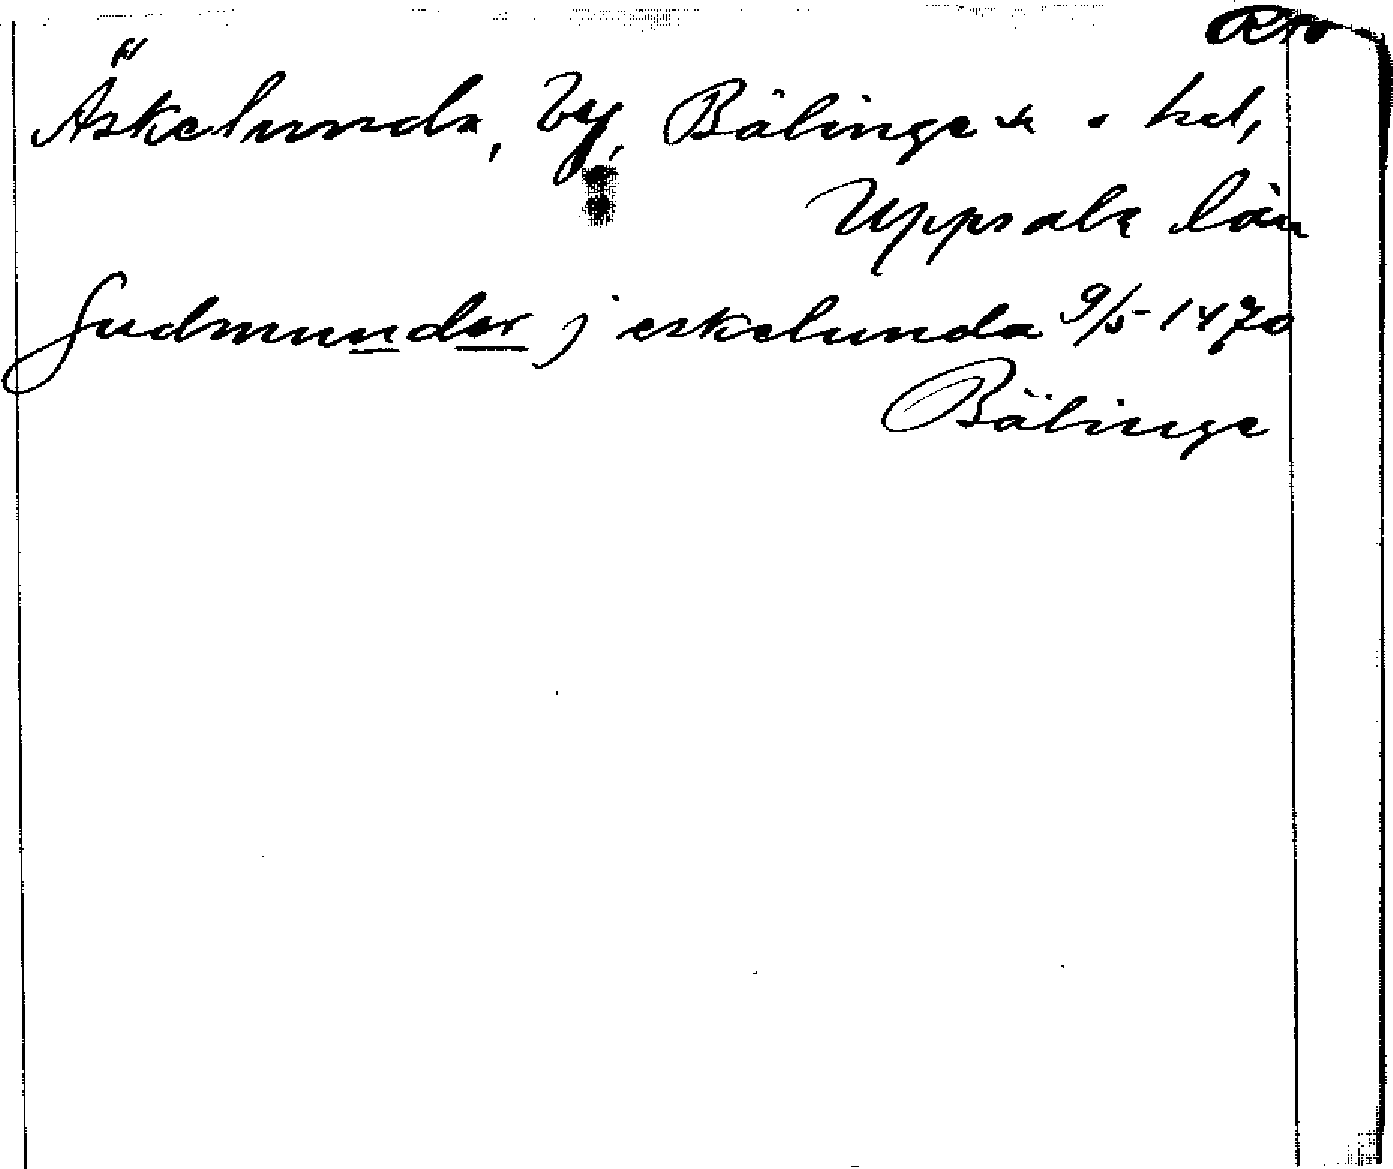 Äskelunda, by, Bälinge sn o. hd,
Uppsala län
Gudmunder j eskelunda 9/5 1470
Bälinge